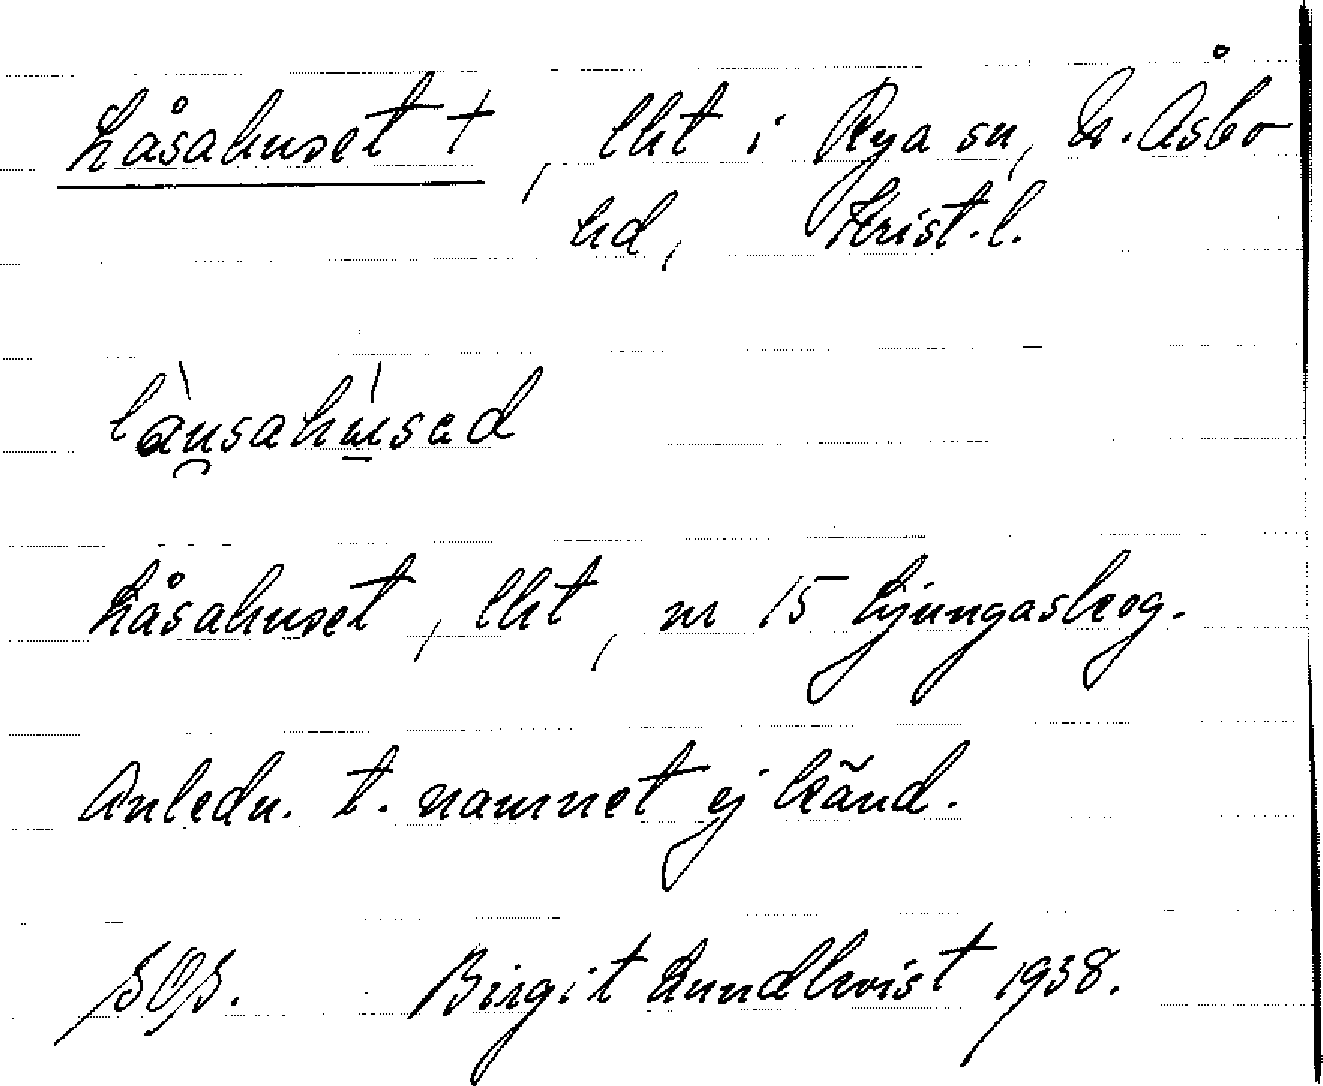 Låsahuset †, lht i Rya sn, N. Åsbo
hd, Krist. l.
làu̯sahùsad
Låsahuset, lht, nr 15 Ljungaskog.
Anledn. t. namnet ej känd.
SOS. Birgit Lundkvist 1938.